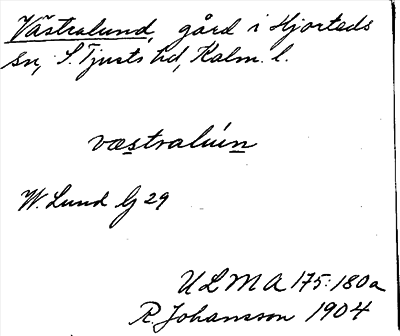 Västralund, gård i Hjorteds
sn, S. Tjusts hd, Kalm. l.
væstralún
W. Lund G 29
ULMA 175:180a
R. Johansson 1904